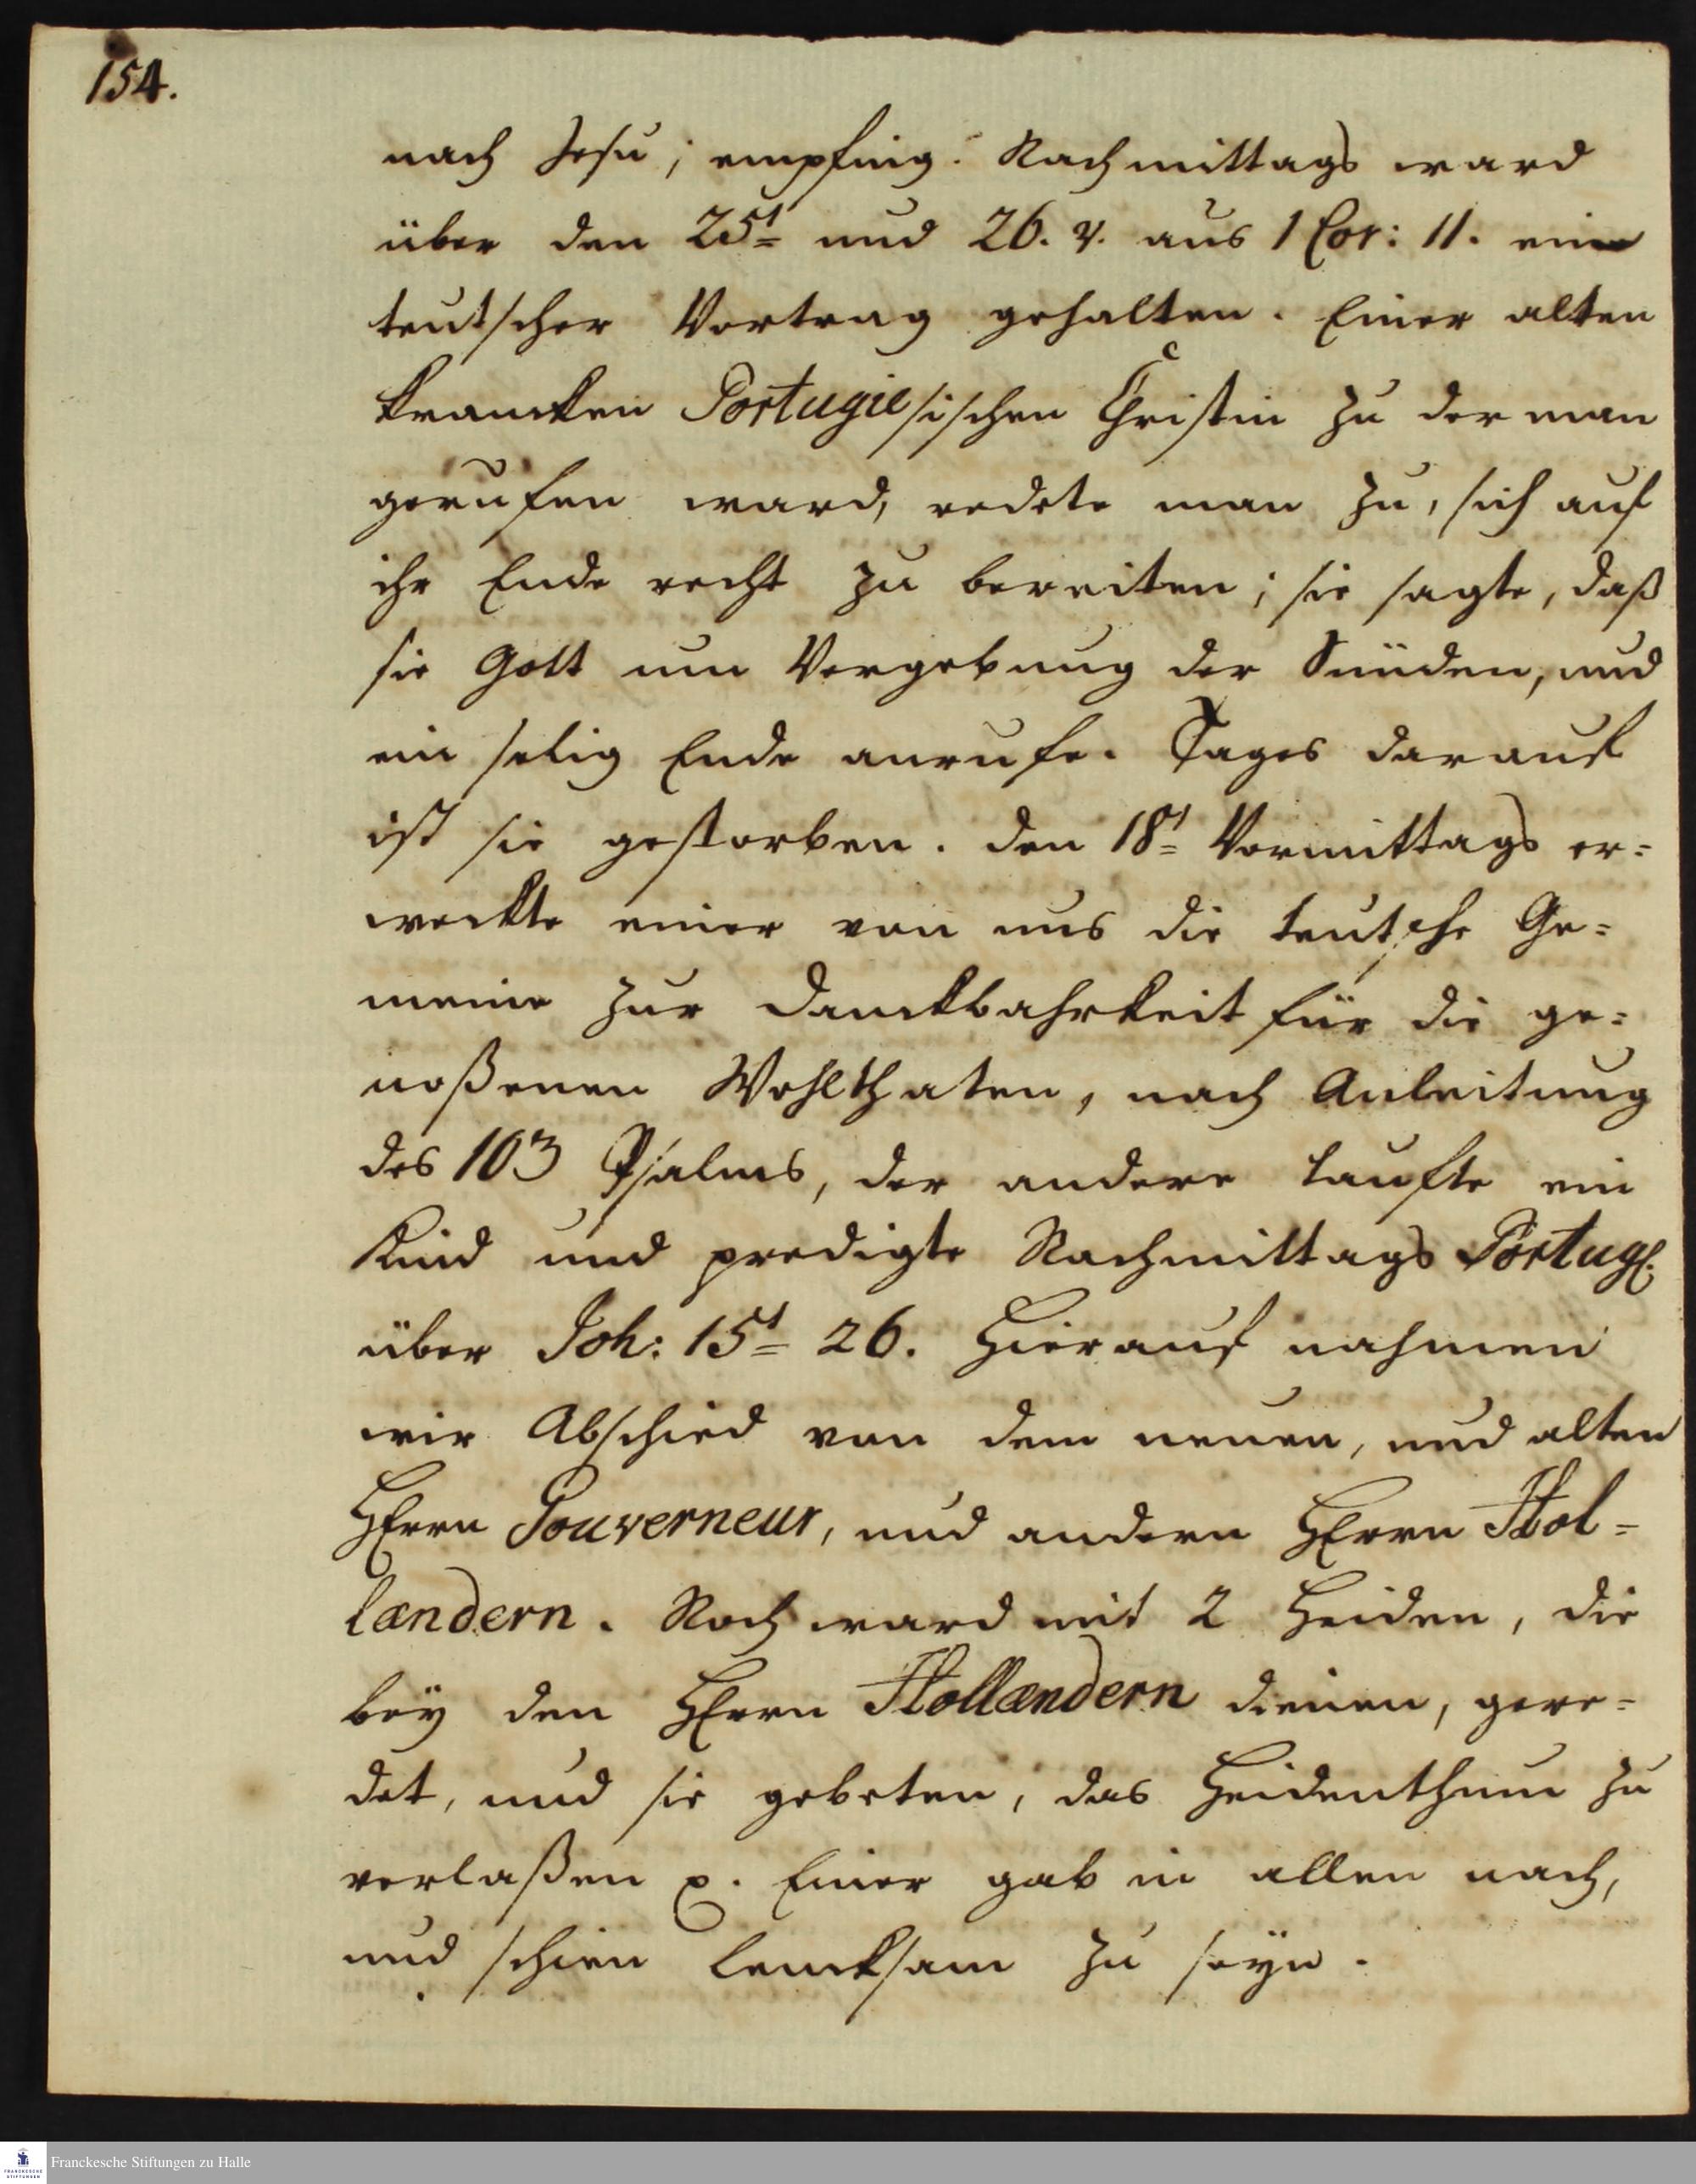 154.
nach Jesu; empfing. Nachmittags ward
über den 25t und 26. v. aus 1 Cor: 11. ein
teutscher Vortrag gehalten. Einer alten
krancken Portugiesischen Christin zu der man
gerufen ward, redete man zu, sich auf
ihr Ende recht zu bereiten; sie sagte, daß
sie Gott um Vergebung der Sünden, und
ein selig Ende anrufe. Tages darauf
ist sie gestorben. den 18t Vormittags er=
weckte einer von uns die teutsche Ge=
meine zur Danckbahrkeit für die ge=
noßenen Wohlthaten, nach Anleitung
des 103 Psalms, der andere taufte ein
Kind und predigte Nachmittags Portug.
über Joh: 15t 26. Hierauf nahmen
wir Abschied von dem neuen, und alten
HErrn Gouverneur, und andern HErrn Hol=
lændern. Noch ward mit 2 Heiden, die
bey den HErrn Hollændern dienen, gere=
det, und sie gebeten, das Heidenthum zu
verlaßen p. Einer gab in allen nach,
und schien lencksam zu seyn.
Franckesche Stiftungen zu Halle
FRANCKESCHE STIFTUNGEN